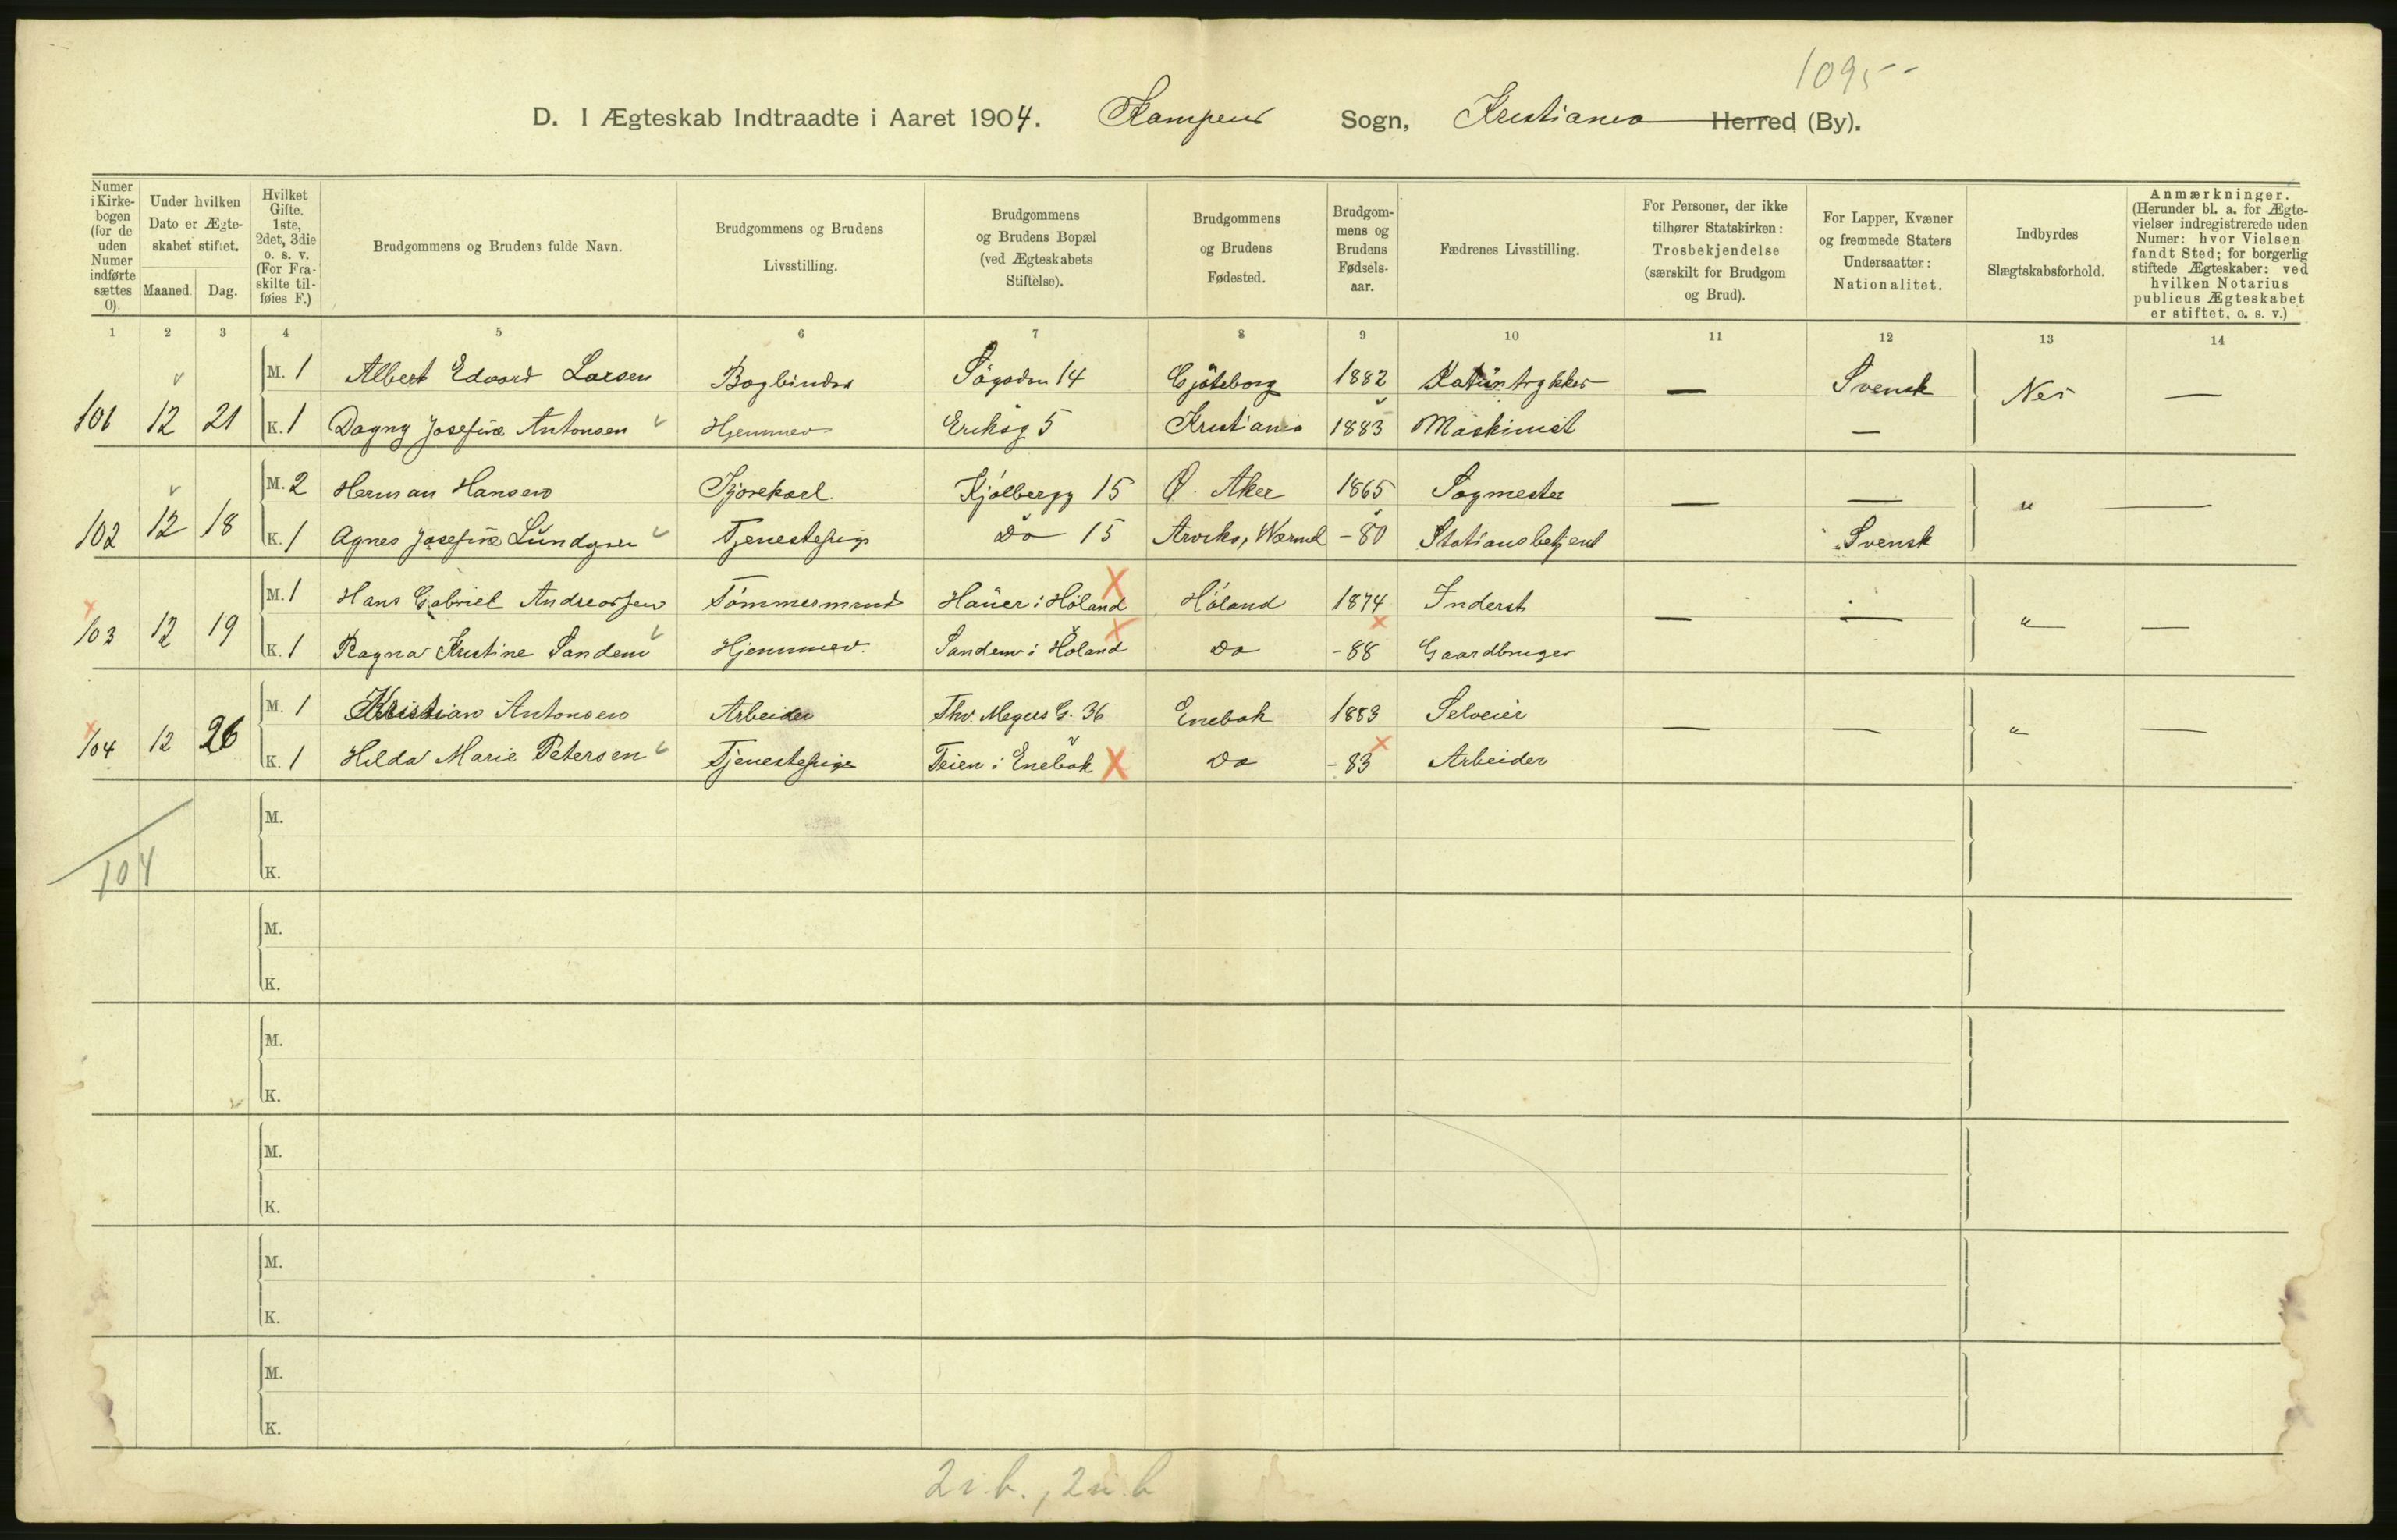 1095
D. I Ægteskab Indtraadte i Aaret 1904. Kampens Sogn, Kristiania Herred (By).
Numer i Kirkebogen (for de uden Numer indførte sættes 0).
Under hvilken Dato er Ægteskabet stiftet.
Maaned. Dag.
Hvilket Gifte. 1ste, 2det, 3die o. s. v. (For Fraskilte tilføies F.)
Brudgommens og Brudens fulde Navn.
Brudgommens og Brudens Livsstilling.
Brudgommens og Brudens Bopæl (ved Ægteskabets Stiftelse).
Brudgommens og Brudens Fødested.
Brudgommens og Brudens Fødselsaar.
Fædrenes Livsstilling.
For Personer, der ikke tilhører Statskirken: Trosbekjendelse (særskilt for Brudgom og Brud).
For Lapper, Kvæner og fremmede Staters Undersaatter: Nationalitet.
Indbyrdes Slægtskabsforhold.
Anmærkninger. (Herunder bl. a. for Ægtevielser indregistrerede uden Numer: hvor Vielsen fandt Sted; for borgerlig stiftede Ægteskaber: ved hvilken Notarius publicus Ægteskabet er stiftet, o. s. v.)
1 2 3 4 5 6 7 8 9 10 11 12 13 14
M. 1 Albert Edvard Larsen Bogbinder Søgaden 14 Gjøteborg 1882 Katuntrykker — Svensk Nei —
101 12 21 K. 1 Dagny Josefine Antonsen Hjemmev Eriksg 5 Kristiania 1883 Maskinist —
M. 2 Herman Hansen Kjørekarl Kjølbergg 15 Ø. Aker 1865 Sagmester — — " —
102 12 18 K. 1 Agnes Josefine Lundgren Tjenestepige Do 15 Arvika, Wærmel - 80 Stationsbetjent Svensk
M. 1 Hans Gabriel Andreassen Tømmermand Hauer i Høland Høland 1874 Inderst — — " —
103 12 19 K. 1 Ragna Kristine Sandem Hjemmev. Sandem i Høland Do - 88 Gaardbruger
M. 1 Kristian Antonsen Arbeider Thv. Meyers G. 36 Enebak 1883 Selveier — — " —
104 12 26 K. 1 Hilda Marie Petersen Tjenestepige Teien i Enebak Do - 83 Arbeider
M.
104 K.
M.
K.
M.
K.
M.
K.
M.
K.
M.
K.
2 i.b., 2 u.b